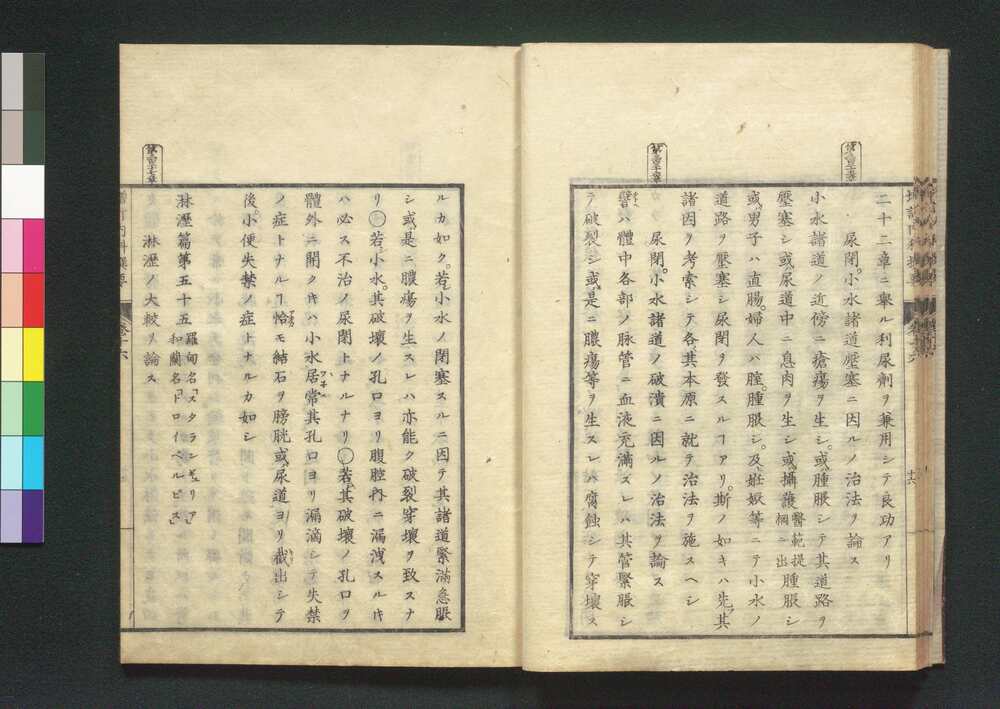 二十二章ニ擧ル利尿劑ヲ兼用シテ良功アリ
尿閉小水諸道壓塞ニ因ルノ治法ヲ論ス
小水諸道ノ近傍ニ瘡瘍ヲ生シ或腫脹シテ其道路ヲ
壓塞シ或尿道中ニ息肉ヲ生シ或攝護醫範提綱ニ出腫脹シ
或男子ハ直腸婦人ハ膣腫脹シ及妊娠等ニテ小水ノ
道路ヲ壓塞シ尿閉ヲ發スルヿアリ斯ノ如キハ先其
諸因ヲ考索シテ各其本原ニ就テ治法ヲ施スヘシ
尿閉小水諸道ノ破潰ニ因ルノ治法ヲ論ス
譬ハ體中各部ノ脉管ニ血液充滿スレハ其管緊脹シ
テ破裂シ或是ニ膿瘍等ヲ生スレハ腐蝕シテ穿壞ス
ルカ如ク若小水ノ閉塞スルニ因テ其諸道緊滿急脹
シ或是ニ膿瘍ヲ生スレハ亦能ク破裂穿壞ヲ致スナ
リ○若小水其破壞ノ孔口ヨリ腹腔內ニ漏洩スルキ
ハ必ス不治ノ尿閉トナルナリ○若其破壞ノ孔口ヲ
體外ニ開クキハ小水居常其孔口ヨリ漏滴シテ失禁
ノ症トナルヿ恰モ結石ヲ膀胱或尿道ヨリ截出シテ
後小便失禁ノ症トナルカ如シ
淋瀝篇第五十五 羅甸名「スタランギュリア」 和蘭名「ドロイペルピス」
淋瀝ノ大較ヲ論ス